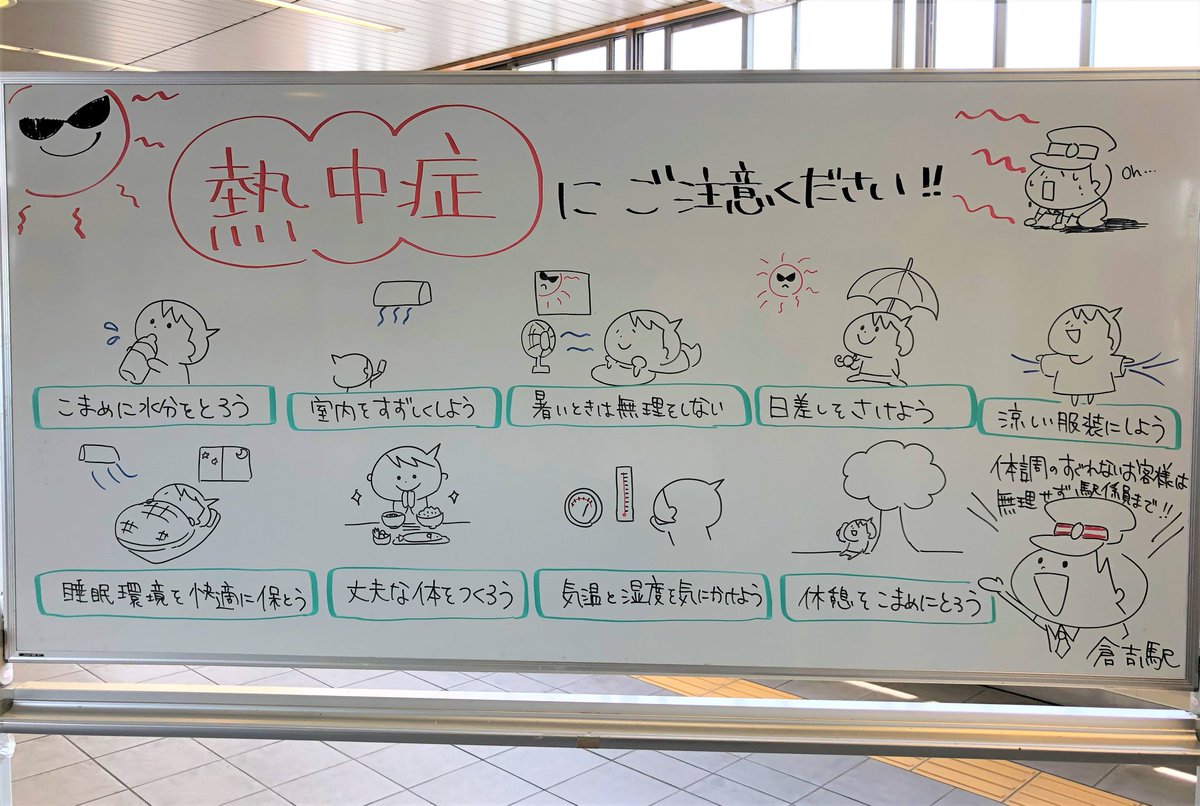 熱中症にご注意ください!!
oh...
こまめに水分をとろう
室内をすずしくしよう
暑いときは無理をしない
日差しをさけよう
涼しい服装にしよう
睡眠環境を快適に保とう
丈夫な体をつくろう
気温と湿度を気にかけよう
休憩をこまめにとろう
体調のすぐれないお客様は
無理せず駅係員まで!!
倉吉駅